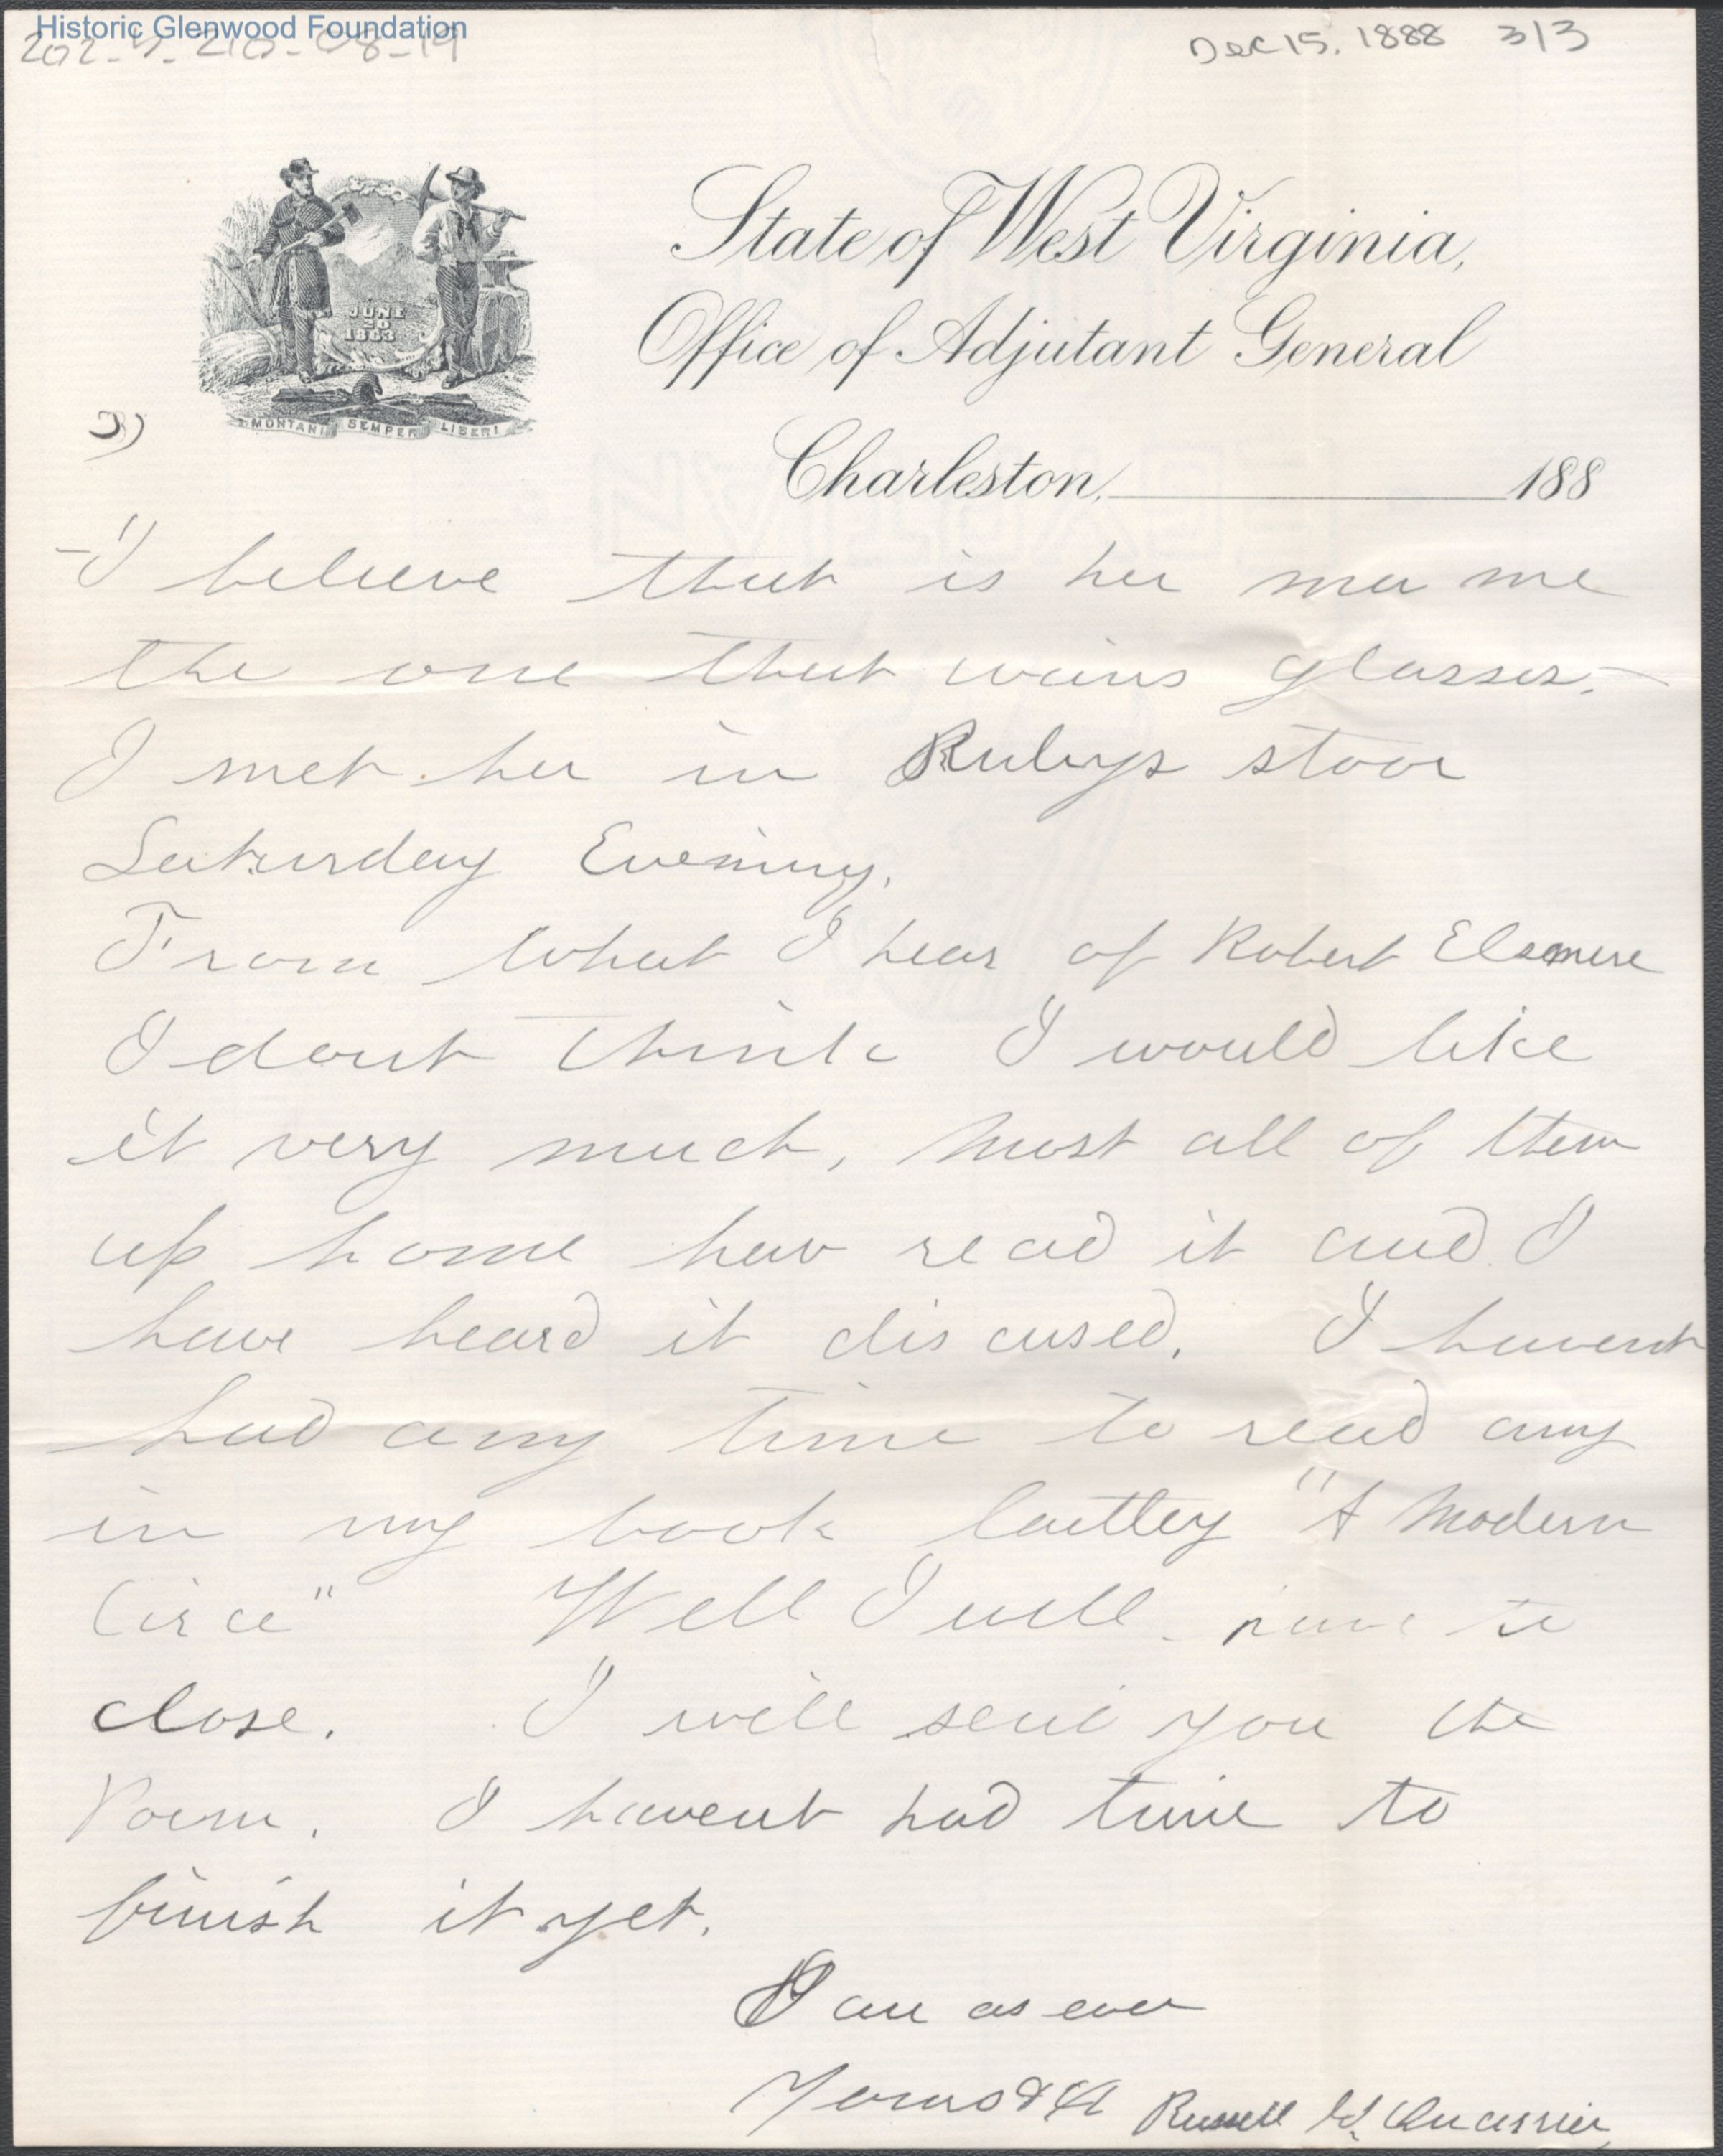 Historic Glenwood Foundation
Dec 15, 1888 3/3
State of West Virginia,
Office of Adjutant General
JUNE
20
1863
MONTANI SEMPER LIBERI
3)
Charleston, 188
-I believe that is her name
the one that wears glasses.-
I met her in Rubys stoor
Saturday Evening.
From what I hear of Robert Elsmere
I dont think I would like
it very much, Most all of them
up home hav read it and I
have heard it discused. I havent
had any time to read any
in my book lattley "A Modern
Circe" Well I will have to
close. I will send you the
Poem. I havent had time to
finish it yet.
I am as ever
Yours &c Russell G. Quarrier